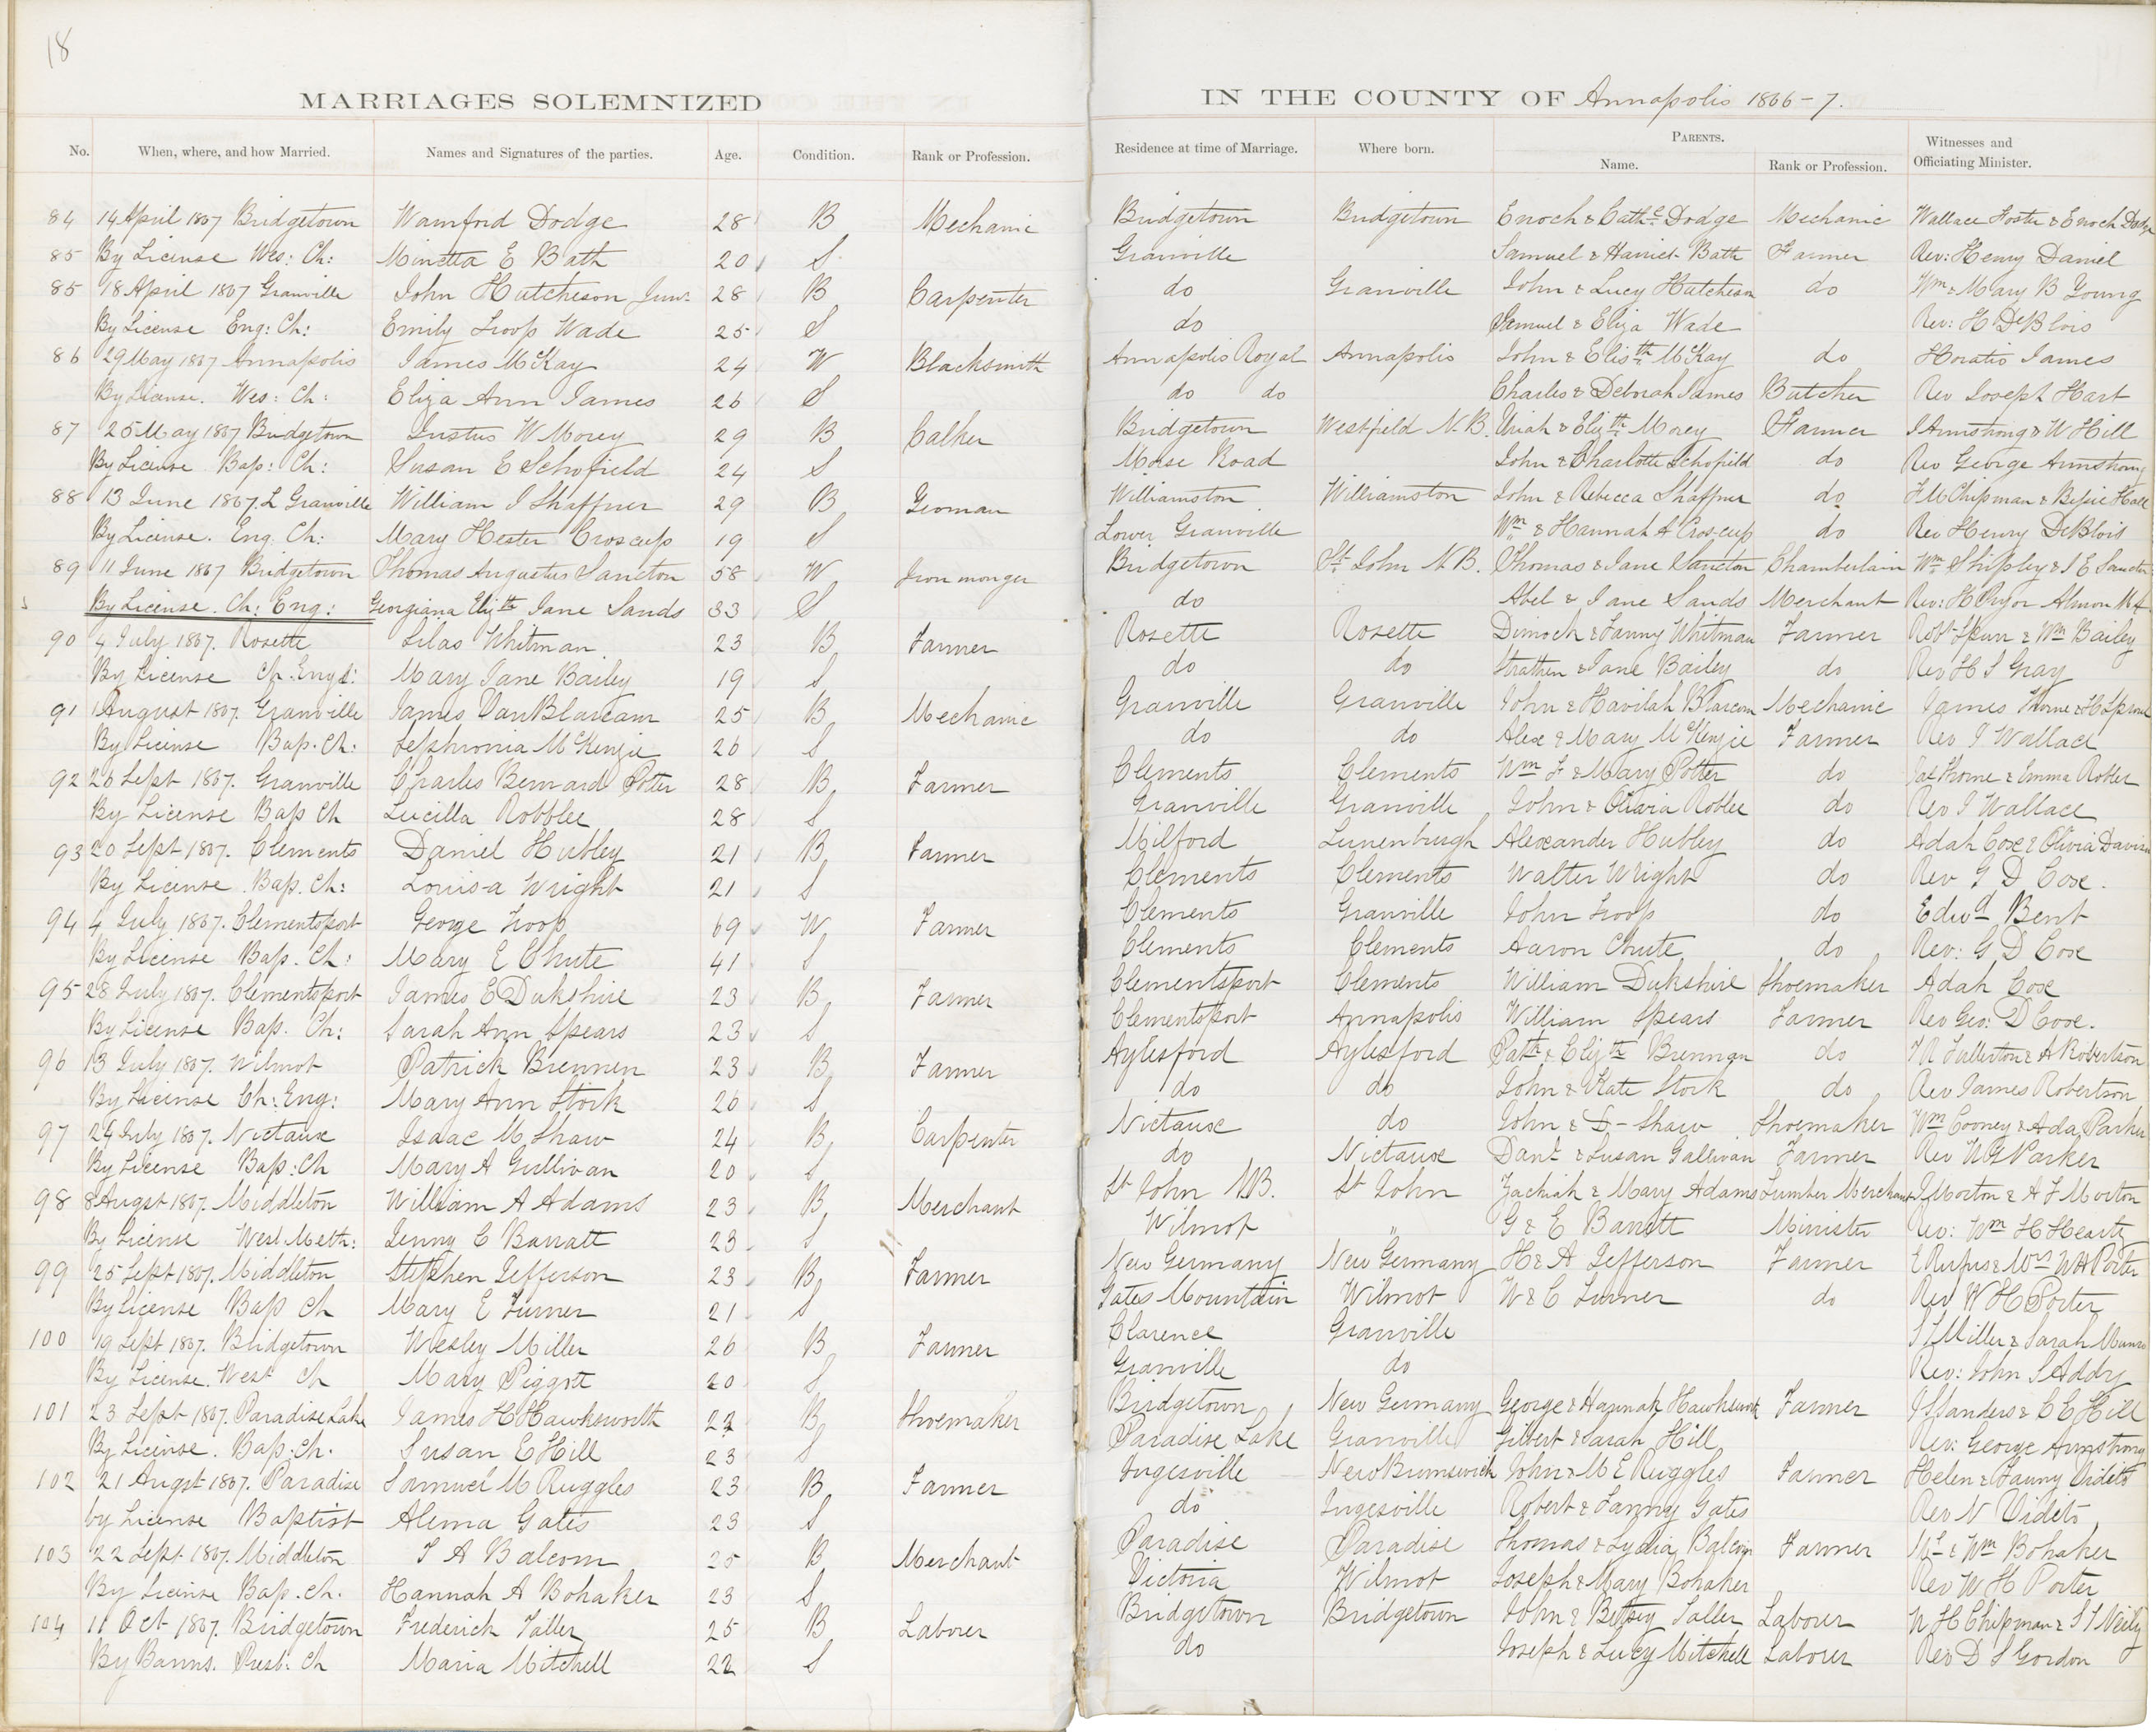 18
MARRIAGES SOLEMNIZED IN THE COUNTY OF Annapolis 1866-7.
No. When, where, and how Married. Names and Signatures of the parties. Age. Condition. Rank or Profession. Residence at time of Marriage. Where born. PARENTS. Name. Rank or Profession. Witnesses and Officiating Minister.
84 14 April 1867 Bridgetown Wamford Dodge 28 B Mechanic Bridgetown Bridgetown Enoch & Cathe Dodge Mechanic Wallace Foster & Enoch Dodge
85 By License Wes: Ch: Minetta E Bath 20 S Granville Samuel & Harriet Bath Farmer Rev: Henry Daniel
85 18 April 1867 Granville John Hutcheson Junr 28 B Carpenter do Granville John & Lucy Hutcheson do Wm & Mary B Young
By License Eng: Ch: Emily Troop Wade 25 S do Samuel & Eliza Wade Rev: H DeBlois
86 29 May 1867 Annapolis James McKay 24 W Blacksmith Annapolis Royal Annapolis John & Elisth McKay do Horatio James
By License. Wes: Ch: Eliza Ann James 26 S do do Charles & Deborah James Butcher Rev Joseph Hart
87 25 May 1867 Bridgetown Justus W Morey 29 B Calker Bridgetown Westfield N.B. Uriah & Elizth Morey Farmer J Armstrong & W Hill
By License Bap: Ch: Susan E Schofield 24 S Morse Road John & Charlotte Schofield do Rev George Armstrong
88 13 June 1867. L Granville William J Shaffner 29 B Yeoman Williamston Williamston John & Rebecca Shaffner do F M Chipman & Bessie Hall
By License. Eng. Ch: Mary Hester Croscup 19 S Lower Granville Wm & Hannah A Croscup do Rev Henry DeBlois
89 11 June 1867 Bridgetown Thomas Augustus Sancton 58 W Iron monger Bridgetown St John N.B. Thomas & Jane Sancton Chamberlain Wm Shipley & J E Sancton
By License. Ch: Eng: Georgiana Elizth Jane Sands 33 S do Abel & Jane Sands Merchant Rev: H Pryor Almon
90 4 July 1867. Rosette Silas Whitman 23 B Farmer Rosette Rosette Dimock & Fanny Whitman Farmer Robt Spurr & Wm Bailey
By License Ch. Engd: Mary Jane Bailey 19 S do do Strathen & Jane Bailey do Rev H S Gray
91 1 August 1867. Granville James VanBlarcam 25 B Mechanic Granville Granville John & Havilah Blarcom Mechanic James Thorne & H Sproul
By License Bap. Ch: Sephronia McKenzie 26 S do do Alex & Mary McKenzie Farmer Rev J Wallace
92 26 Sept 1867. Granville Charles Bernard Potter 28 B Farmer Clements Clements Wm F & Mary Potter do Jas Thorne & Emma Roblee
By License Bap Ch Lucilla Robblee 28 S Granville Granville John & Olivia Roblee do Rev J Wallace
93 20 Sept 1867. Clements Daniel Hubley 21 B Farmer Milford Lunenburgh Alexander Hubley do Adah Cox & Olivia Davison
By License. Bap. Ch: Louisa Wright 21 S Clements Clements Walter Wright do Rev G D Cox.
94 4 July 1867. Clementsport George Troop 69 W Farmer Clements Granville John Troop do Edwd Bent
By License Bap. Ch: Mary E Chute 41 S Clements Clements Aaron Chute do Rev: G D Cox
95 28 July 1867. Clementsport James E Dukshire 23 B Farmer Clementsport Clements William Dukshire Shoemaker Adah Cox
By License Bap. Ch: Sarah Ann Spears 23 S Clementsport Annapolis William Spears Farmer Rev Geo: D Cox.
96 13 July 1867. Wilmot Patrick Brennen 23 B Farmer Aylesford Aylesford Patk & Elizth Brennan do Fullerton & A Robertson
By License Ch: Eng: Mary Ann Stork 26 S do do John & Kate Stork do Rev James Robertson
97 24 July 1867. Nictaux Isaac M Shaw 24 B Carpenter Nictaux do John & D - Shaw Shoemaker Wm Cooney & Ada Parker
By License Bap: Ch Mary A Gullivan 20 S do Nictaux Danl & Susan Gallivan Farmer Rev W G Parker
98 8 Augst 1867. Middleton William A Adams 23 B Merchant St John NB. St John Zachiah & Mary Adams Lumber Merchant J Morton & A F Morton
By License Wesl. Meth: Jenny C Barratt 23 S Wilmot " G & E Barrett Minister Rev: Wm H Heartz
99 25 Sept 1867. Middleton Stephen Jefferson 23 B Farmer New Germany New Germany H & A Jefferson Farmer E Rufus & Mrs W H Porter
By License Bap Ch Mary E Turner 21 S Gates Mountain Wilmot W & C Turner do Rev W H Porter
100 19 Sept 1867. Bridgetown Wesley Miller 26 B Farmer Clarence Granville S Miller & Sarah Munro
By License. West Ch Mary Piggott 20 S Granville do Rev: John S Addy
101 23 Sept 1867. Paradise Lake James H Hawksworth 22 B Shoemaker Bridgetown New Germany George & Hannah Hawksworth Farmer J S Sanders & C E Hill
By License. Bap. Ch. Susan E Hill 23 S Paradise Lake Granville Gilbert & Sarah Hill Rev: George Armstrong
102 21 Augst 1867. Paradise Samuel M Ruggles 23 B Farmer Ingesville New Brunswick John & M E Ruggles Farmer Helen & Fanny Vidito
by License Baptist Alema Gates 23 S do Ingesville Robert & Fanny Gates Rev N Vidito
103 22 Sept 1867. Middleton T A Balcom 25 B Merchant Paradise Paradise Thomas & Lydia Balcom Farmer & Wm Bohaker
By License Bap. Ch. Hannah A Bohaker 23 S Victoria Wilmot Joseph & Mary Bohaker Rev W H Porter
104 11 Oct 1867. Bridgetown Frederick Faller 25 B Laborer Bridgetown Bridgetown John & Betsey Faller Labourer W H Chipman & S S Neily
By Banns. Presb: Ch Maria Mitchell 22 S do Joseph & Lucy Mitchell Laborer Rev D S Gordon